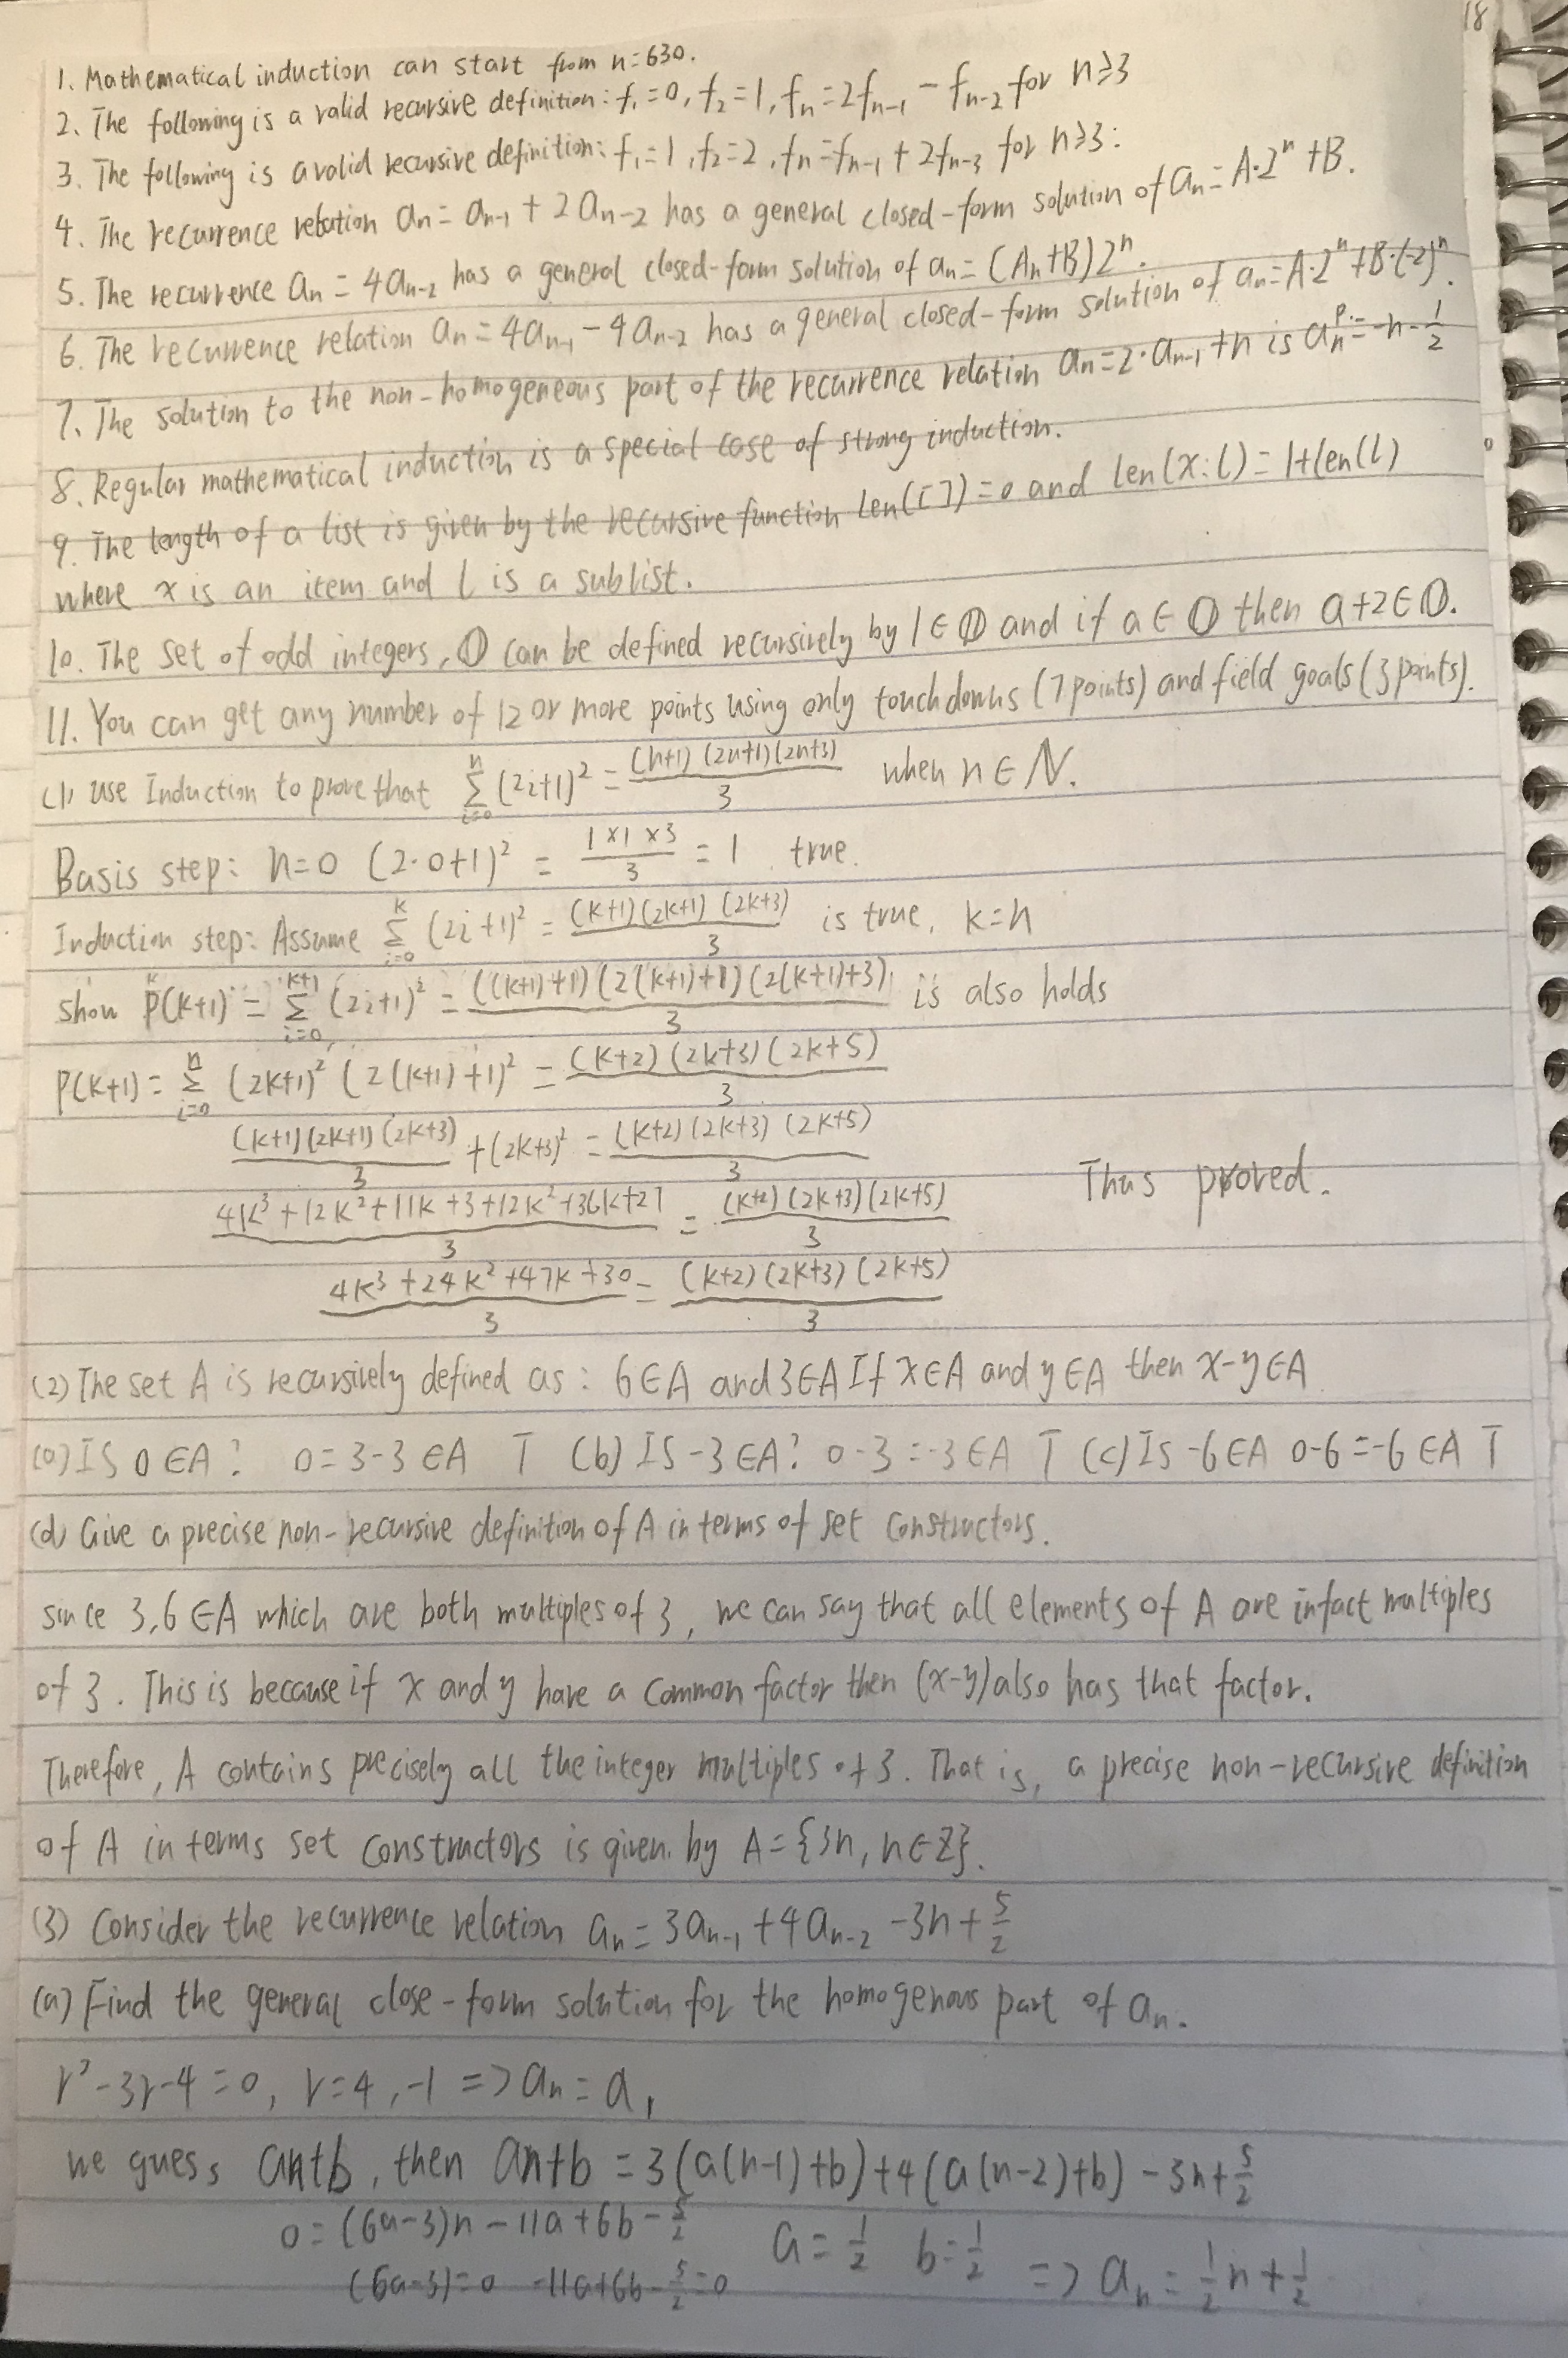 18
1. Mathematical induction can start from n=630.
2. The following is a valid recursive definition: f₁=0, f₂=1, fₙ=2fₙ₋₁ - fₙ₋₂ for n≥3
3. The following is a valid recursive definition: f₁=1, f₂=2, fₙ=fₙ₋₁ + 2fₙ₋₃ for n≥3:
4. The recurrence relation aₙ = aₙ₋₁ + 2aₙ₋₂ has a general closed-form solution of aₙ = A·2ⁿ + B.
5. The recurrence aₙ = 4aₙ₋₂ has a general closed-form solution of aₙ = (An+B)2ⁿ.
6. The recurrence relation aₙ = 4aₙ₋₁ - 4aₙ₋₂ has a general closed-form solution of aₙ=A·2ⁿ+B·(-2)ⁿ.
7. The solution to the non-homogeneous part of the recurrence relation aₙ=2·aₙ₋₁+n is aₙᵖ·=-n-1/2
8. Regular mathematical induction is a special case of strong induction.
9. The length of a list is given by the recursive function len([])=0 and len(x:l)=1+len(l)
where x is an item and l is a sublist.
10. The set of odd integers, 𝕆 can be defined recursively by 1∈𝕆 and if a∈𝕆 then a+2∈𝕆.
11. You can get any number of 12 or more points using only touchdowns (7 points) and field goals (3 points).
(1) use Induction to prove that Σ_{i=0}^{n} (2i+1)² = (n+1)(2n+1)(2n+3)/3 when n∈N.
Basis step: n=0 (2·0+1)² = 1×1×3/3 = 1 true.
Induction step: Assume Σ_{i=0}^{k} (2i+1)² = (k+1)(2k+1)(2k+3)/3 is true, k=n
show P(k+1) = Σ_{i=0}^{k+1} (2i+1)² = ((k+1)+1)(2(k+1)+1)(2(k+1)+3)/3 is also holds
P(k+1) = Σ_{i=0}^{n} (2k+1)² (2(k+1)+1)² = (k+2)(2k+3)(2k+5)/3
(k+1)(2k+1)(2k+3)/3 + (2k+3)² = (k+2)(2k+3)(2k+5)/3
4k³+12k²+11k+3+12k²+36k+27/3 = (k+2)(2k+3)(2k+5)/3 Thus proved.
4k³+24k²+47k+30/3 = (k+2)(2k+3)(2k+5)/3
(2) The set A is recursively defined as: 6∈A and 3∈A If x∈A and y∈A then x-y∈A
(a) IS 0∈A? 0=3-3∈A T (b) IS -3∈A? 0-3=-3∈A T (c) Is -6∈A 0-6=-6∈A T
(d) Give a precise non-recursive definition of A in terms of set constructors.
since 3,6∈A which are both multiples of 3, we can say that all elements of A are infact multiples
of 3. This is because if x and y have a common factor then (x-y) also has that factor.
Therefore, A contains precisely all the integer multiples of 3. That is, a precise non-recursive definition
of A in terms set constructors is given by A={3n, n∈Z}.
(3) Consider the recurrence relation aₙ = 3aₙ₋₁ + 4aₙ₋₂ - 3n + 5/2
(a) Find the general close-form solution for the homogenous part of aₙ.
r²-3r-4=0, r=4,-1 => aₙ = a₁
we guess an+b, then an+b = 3(a(n-1)+b)+4(a(n-2)+b) - 3n+5/2
0=(6a-3)n-11a+6b-5/2 a=1/2 b=1/2 => aₙ = 1/2n+1/2
(6a-3)=0 -11a+6b-5/2=0